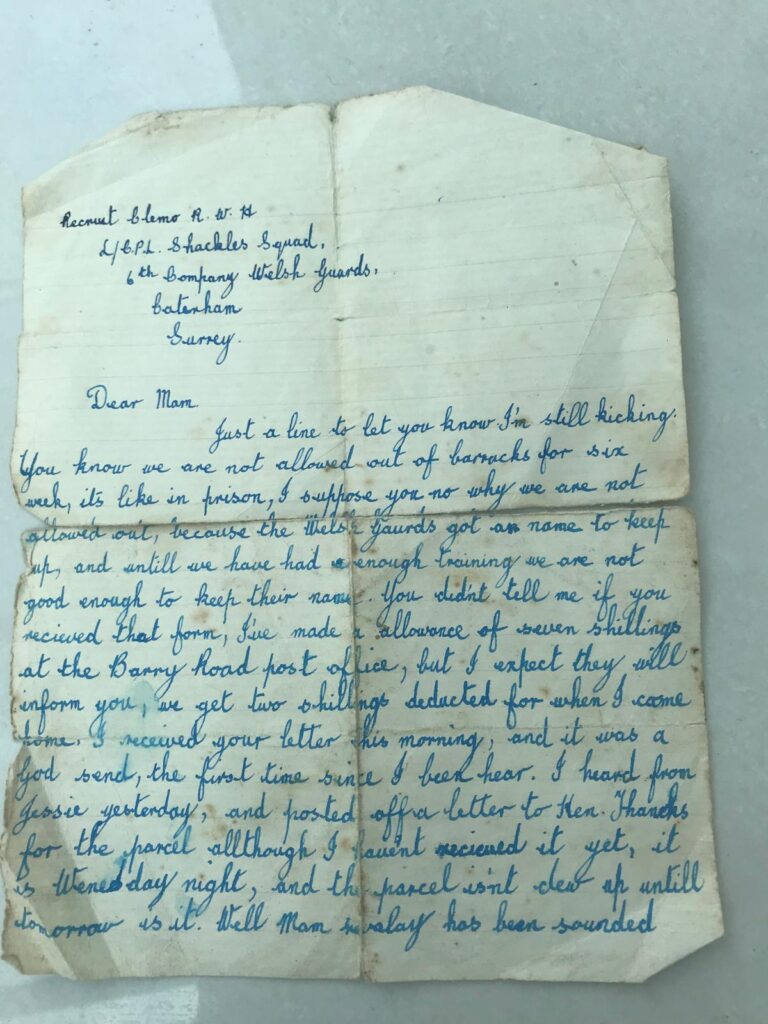 Recruit Clemo R. W. H
L/C.P.L. Shackles Squad,
6th Company Welsh Guards,
Caterham
Surrey.
Dear Mam
Just a line to let you know I'm still kicking.
You know we are not allowed out of barracks for six
week, its like in prison, I suppose you no why we are not
allowed out, because the Welsh Gaurds got a name to keep
up, and untill we have had enough training we are not
good enough to keep their name. You didn't tell me if you
recieved that form, I've made a allowance of seven shillings
at the Barry Road post office, but I expect they will
inform you, we get two shillings deducted for when I come
home. I received your letter this morning, and it was a
God send, the first time since I been hear. I heard from
Jessie yesterday, and posted off a letter to Ken. Thancks
for the parcel allthough I havent recieved it yet, it
is Wenedday night, and the parcel isn't dew up untill
tomorrow is it. Well Mam revalay has been sounded